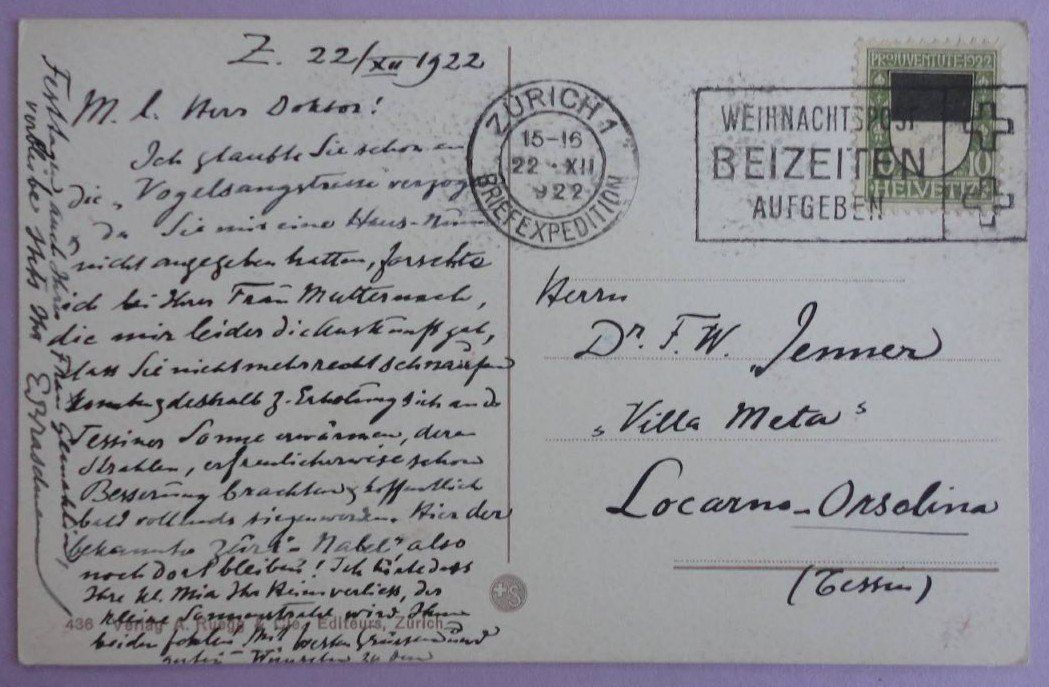 Z. 22/XII 1922
M. l. Herr Doktor!
Ich glaubte Sie schon an
die "Vogelsangstrasse verzogen
da Sie mir eine Haus-Num
nicht angegeben hatten, forschte
ich bei Ihrer Frau Mutter nach,
die mir leider die Auskunft gab,
dass Sie nicht mehr recht schnaufen
deshalb z. Erholung sich an de
Tessiner Sonne erwärmen, deren
Strahlen, erfreulicherweise schon
Besserung brachten & hoffentlich
bald vollends siegen werden. Hier der
bekannte Züri-"Nabel", also
noch dort bleiben! Ich hörte dass
Ihre kl. Mia Ihr Heim verliess, der
kleine Sonnenstrahl wird Ihnen
beiden fehlen. Mit besten Grüssen und
guten Wünschen zu den
Festtagen auch Ihrer Frau Gemahlin,
verbleibe stets Ihr
ZÜRICH 1
15-16
22·XII
922
BRIEFEXPEDITION
WEIHNACHTSPOST
BEIZEITEN
AUFGEBEN
PRO JUVENTUTE 1922
10
HELVETIA
Herrn
Dr. F. W. Jenner
"Villa Meta"
Locarno-Orselina
(Tessin)
436 Verlag A. Ruegg & Cie., Editeurs, Zürich